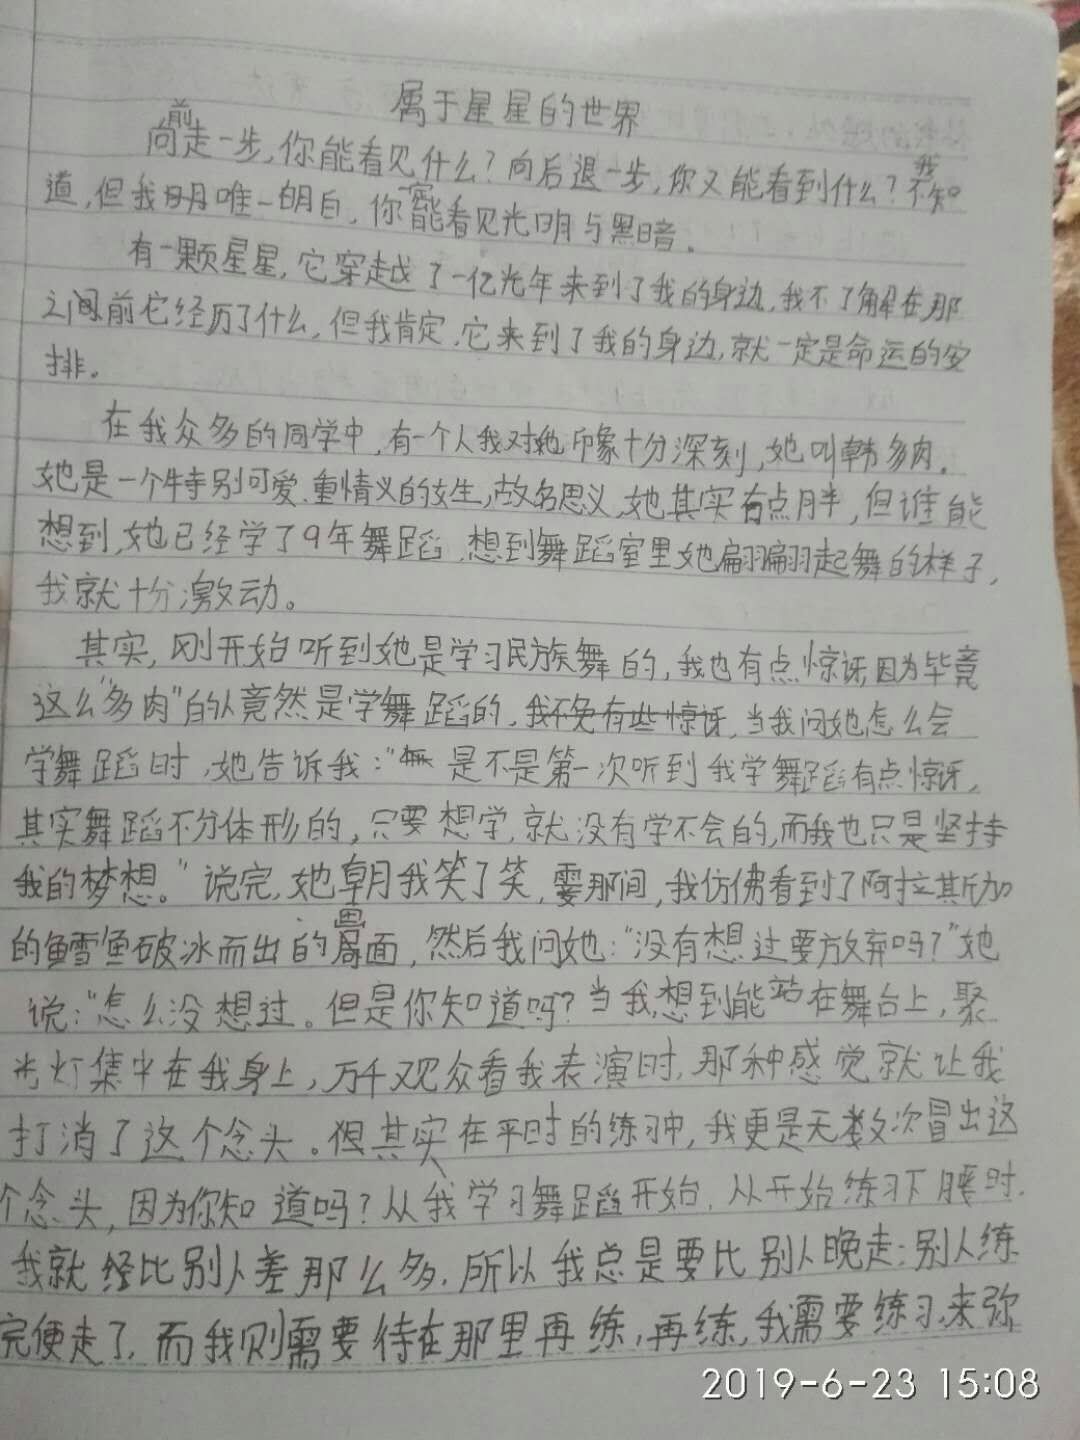 属于星星的世界
向前走一步,你能看见什么?向后退一步,你又能看到什么?我不知
道,但我明唯一明白,你能看见光明与黑暗。
有一颗星星,它穿越了一亿光年来到了我的身边,我不了解在那
之间前它经历了什么,但我肯定,它来到了我的身边,就一定是命运的安
排。
在我众多的同学中,有一个人我对她印象十分深刻,她叫韩多肉。
她是一个特别可爱、重情义的女生,故名思义,她其实有点胖,但谁能
想到,她已经学了9年舞蹈,想到舞蹈室里她翩翩起舞的样子,
我就十分激动。
其实,刚开始听到她是学习民族舞的,我也有点惊讶,因为毕竟
这么"多肉"的人竟然是学舞蹈的,我不免有些惊讶,当我问她怎么会
学舞蹈时,她告诉我:"是不是第一次听到我学舞蹈有点惊讶,
其实舞蹈不分体形的,只要想学,就没有学不会的,而我也只是坚持
我的梦想。"说完,她朝我笑了笑,霎那间,我仿佛看到了阿拉斯加
的鳕鱼破冰而出的画面,然后我问她:"没有想过要放弃吗?"她
说:"怎么没想过。但是你知道吗?当我想到能站在舞台上,聚
光灯集中在我身上,万千观众看我表演时,那种感觉就让我
打消了这个念头。但其实在平时的练习中,我更是无数次冒出这
个念头,因为你知道吗?从我学习舞蹈开始,从开始练习下腰时,
我就经比别人差那么多,所以我总是要比别人晚走;别人练
完便走了,而我则需要待在那里再练,再练,我需要练习来弥
2019-6-23 15:08